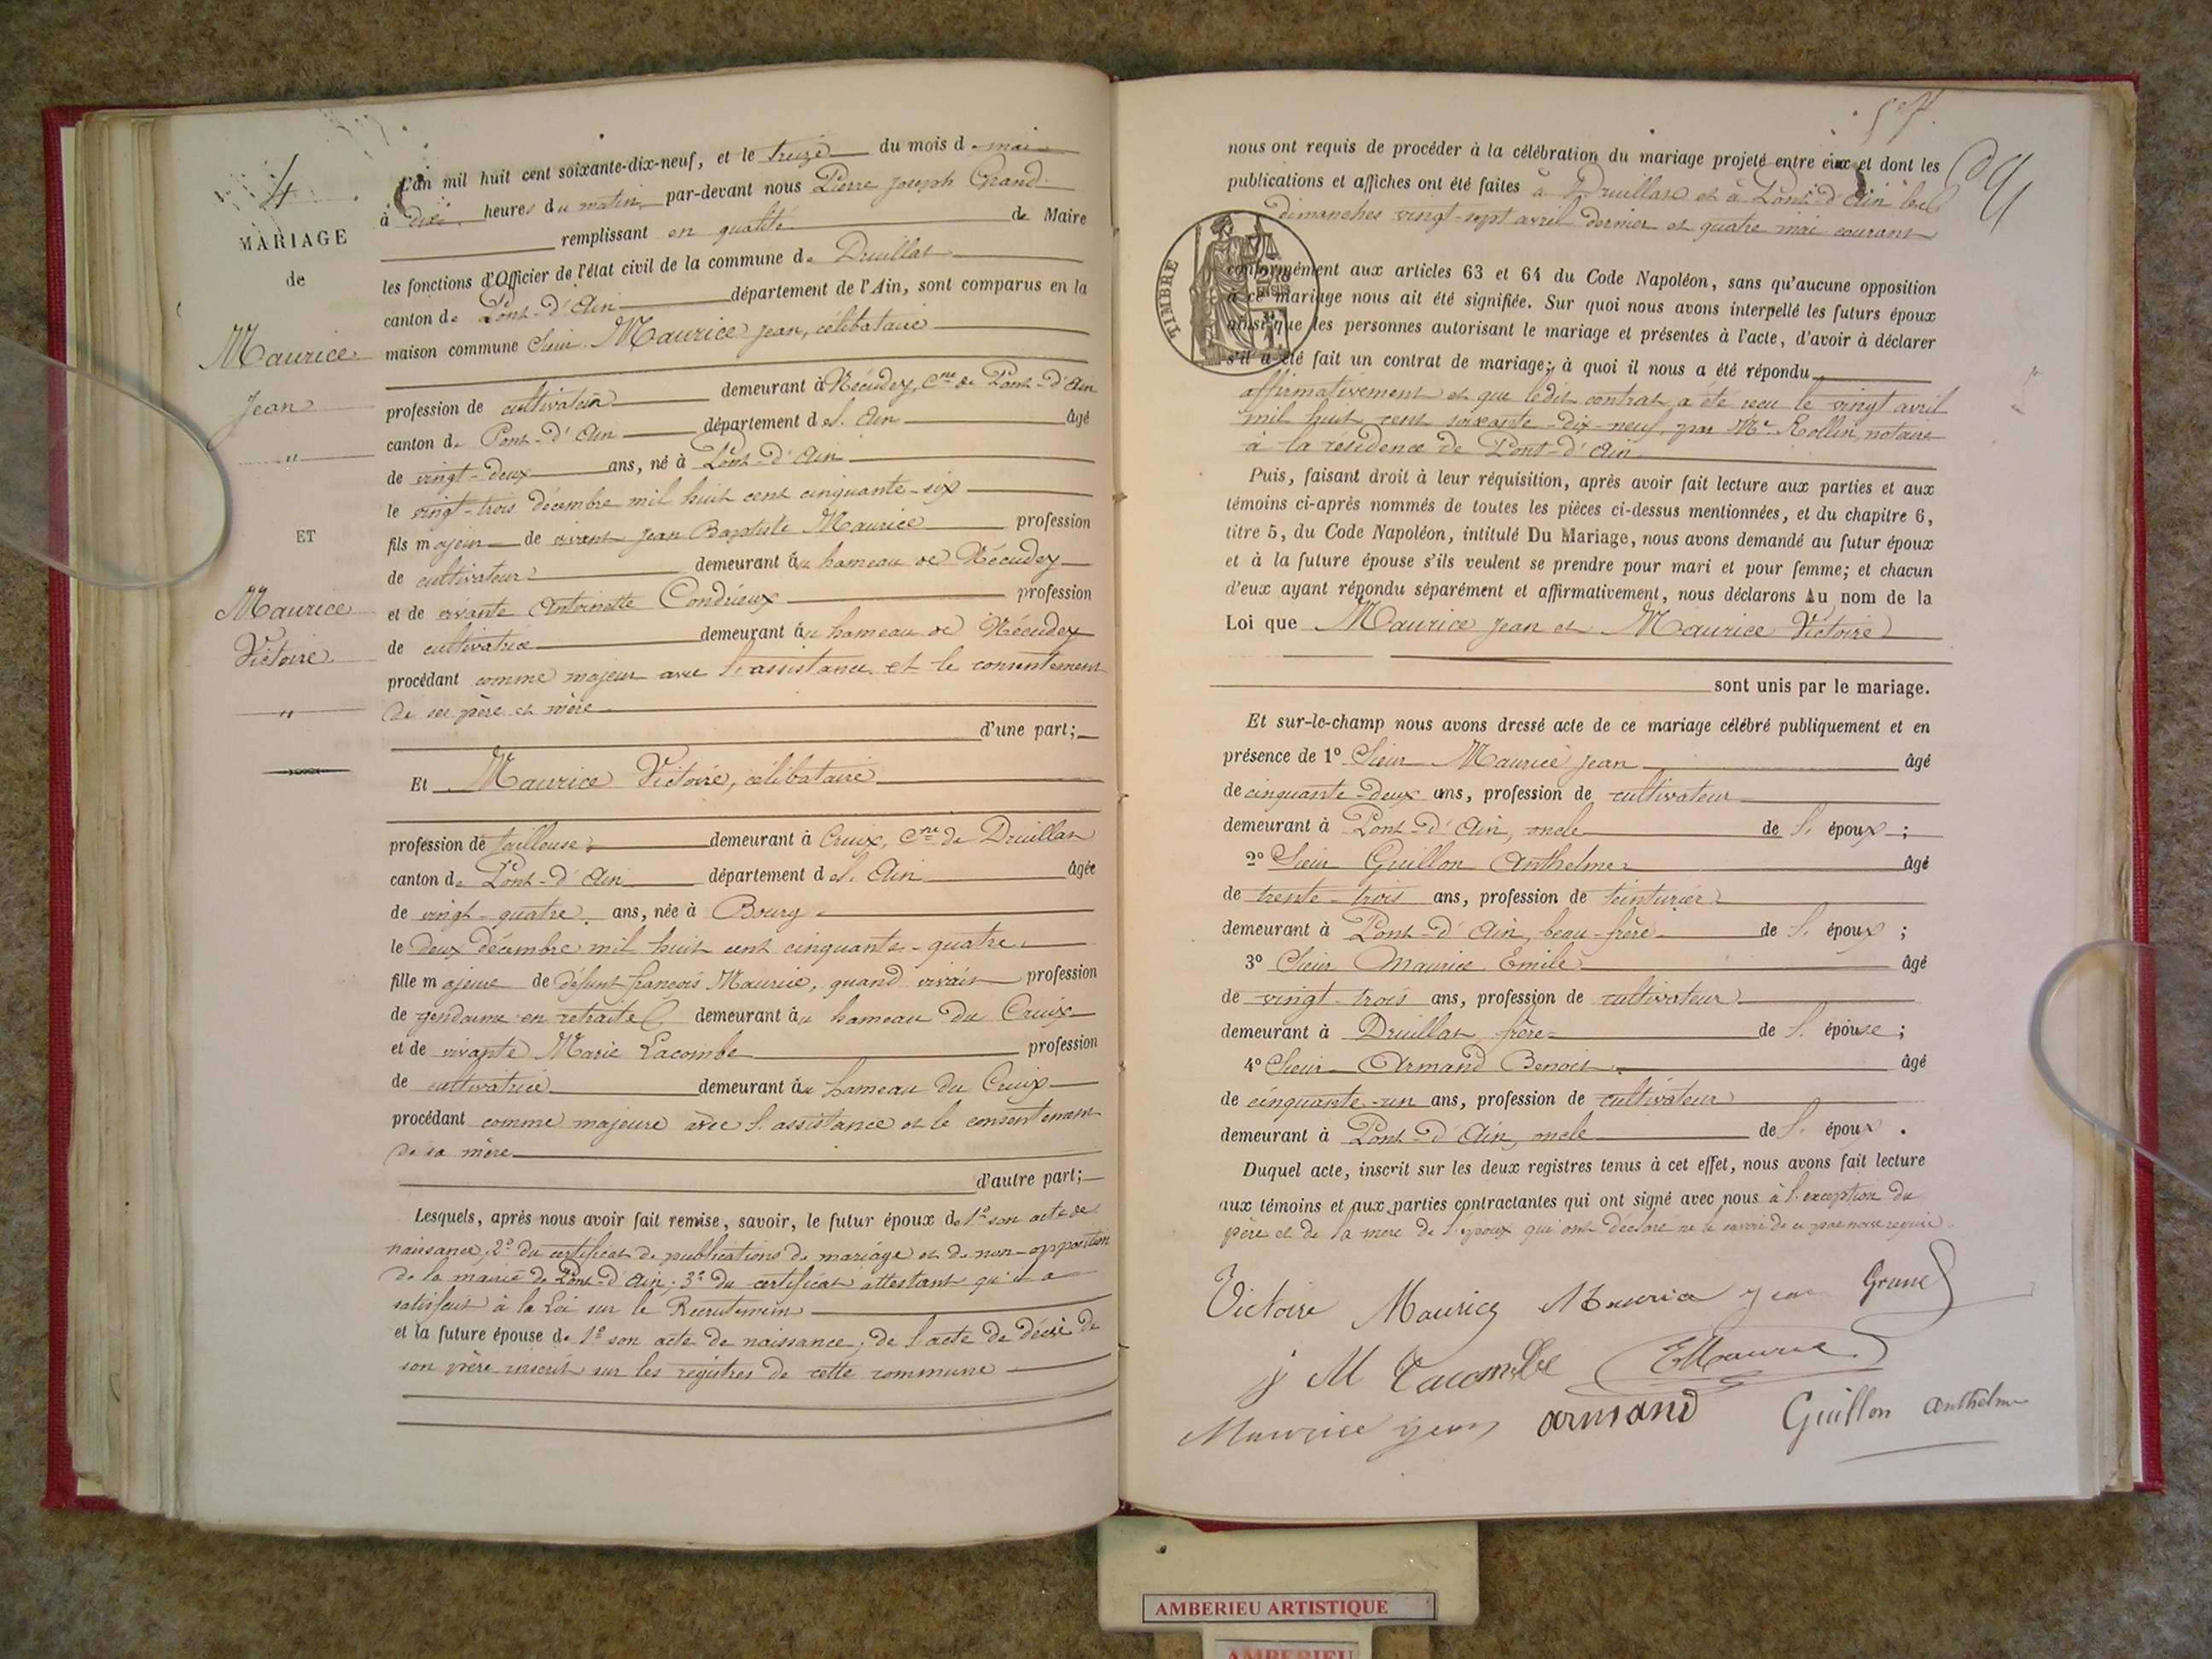 4
MARIAGE
de
Maurice
Jean
"
ET
Maurice
Victoire
"
L'an mil huit cent soixante-dix-neuf, et le treize du mois d mai
à dix heures du matin par-devant nous Pierre Joseph Grand
remplissant en qualité de Maire
les fonctions d'Officier de l'état civil de la commune de Druillat
canton de Pont-d'Ain département de l'Ain, sont comparus en la
maison commune Sieur Maurice Jean, célibataire
profession de cultivateur demeurant à Nécudey, Cne de Pont-d'Ain
canton de Pont-d'Ain département de l'Ain âgé
de vingt-deux ans, né à Pont-d'Ain
le vingt-trois décembre mil huit cent cinquante-six
fils majeur de vivant Jean Baptiste Maurice profession
de cultivateur demeurant au hameau de Nécudey
et de vivante Antoinette Condrieux profession
de cultivatrice demeurant au hameau de Nécudey
procédant comme majeur avec l'assistance et le consentement
de ses père et mère
d'une part;
Et Maurice Victoire, célibataire
profession de tailleuse demeurant à Cruix, Cne de Druillat
canton de Pont-d'Ain département de l'Ain âgée
de vingt-quatre ans, née à Bourg
le deux décembre mil huit cent cinquante-quatre
fille majeure de défunt françois Maurice, quand vivait profession
de gendarme en retraite demeurant au hameau du Cruix
et de vivante Marie Lacombe profession
de cultivatrice demeurant au hameau du Cruix
procédant comme majeure avec l'assistance et le consentement
de sa mère
d'autre part;
Lesquels, après nous avoir fait remise, savoir, le futur époux de 1º son acte de
naissance, 2º du certificat de publications de mariage et de non-opposition
de la mairie de Pont-d'Ain; 3º du certificat attestant qu'il a
satisfait à la Loi sur le Recrutement
et la future épouse de 1º son acte de naissance; de l'acte de décès de
son père inscrit sur les registres de cette commune
nous ont requis de procéder à la célébration du mariage projeté entre eux et dont les
publications et affiches ont été faites à Druillat et à Pont-d'Ain les
dimanches vingt-sept avril dernier et quatre mai courant
TIMBRE
conformément aux articles 63 et 64 du Code Napoléon, sans qu'aucune opposition
à ce mariage nous ait été signifiée. Sur quoi nous avons interpellé les futurs époux
ainsi que les personnes autorisant le mariage et présentes à l'acte, d'avoir à déclarer
s'il a été fait un contrat de mariage; à quoi il nous a été répondu
affirmativement et que ledit contrat a été reçu le vingt avril
mil huit cent soixante-dix-neuf, par Me Rollin, notaire
à la résidence de Pont-d'Ain
Puis, faisant droit à leur réquisition, après avoir fait lecture aux parties et aux
témoins ci-après nommés de toutes les pièces ci-dessus mentionnées, et du chapitre 6,
titre 5, du Code Napoléon, intitulé Du Mariage, nous avons demandé au futur époux
et à la future épouse s'ils veulent se prendre pour mari et pour femme; et chacun
d'eux ayant répondu séparément et affirmativement, nous déclarons Au nom de la
Loi que Maurice Jean et Maurice Victoire
sont unis par le mariage.
Et sur-le-champ nous avons dressé acte de ce mariage célébré publiquement et en
présence de 1º Sieur Maurice Jean âgé
de cinquante-deux ans, profession de cultivateur
demeurant à Pont-d'Ain, oncle de l'époux;
2º Sieur Guillon Anthelme âgé
de trente-trois ans, profession de teinturier
demeurant à Pont-d'Ain, beau-frère de l'époux;
3º Sieur Maurice Emile âgé
de vingt-trois ans, profession de cultivateur
demeurant à Druillat, frère de l'épouse;
4º Sieur Armand Benoit âgé
de cinquante-un ans, profession de cultivateur
demeurant à Pont-d'Ain, oncle de l'époux.
Duquel acte, inscrit sur les deux registres tenus à cet effet, nous avons fait lecture
aux témoins et aux parties contractantes qui ont signé avec nous à l'exception du
père et de la mère de l'époux qui ont déclaré ne le savoir de ce par nous requis.
Victoire Maurice Maurice jean Grand
j M Lacombe EMaurice
Maurice jean armand Guillon anthelme
AMBERIEU ARTISTIQUE
AMBERIEU